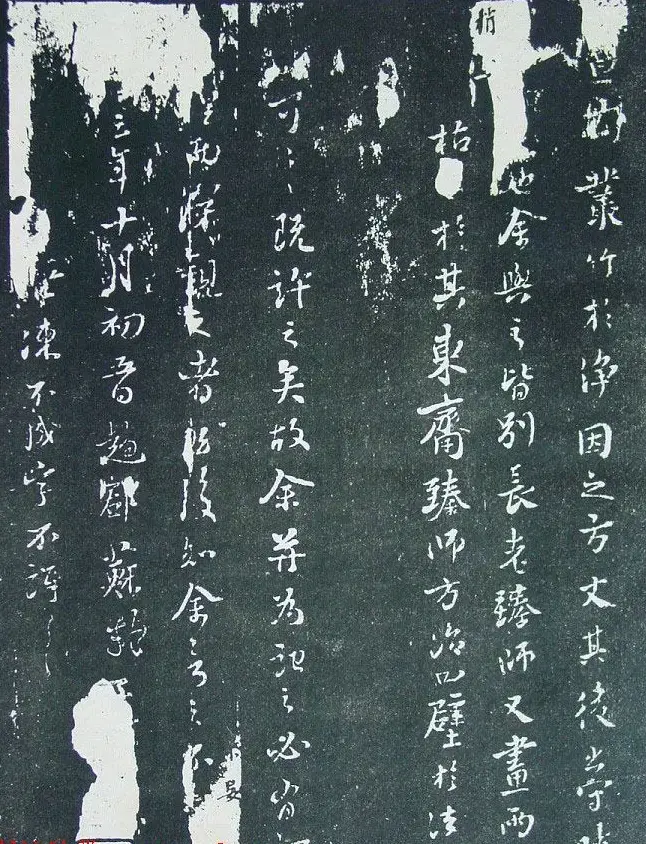 兩叢竹於淨因之方丈其後出守
也余與之皆別長老臻師又畫兩
梢
枯
於其東齋臻師方治四壁於法
可〻既許之矣故余并為記之必有
深觀之者然後知余言之不
妄
三年十月初五日趙郡蘇軾
凍不成字不訝〻